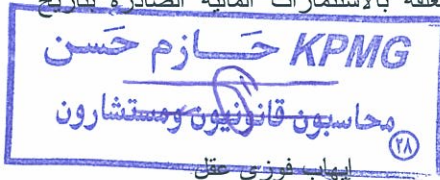 بالاستثمارات المالية الصادرة بتاريخ
KPMG حــازم حَسن
محاسبون قانونيون ومستشارون
(٢٨)
إيهاب فوزي عقل